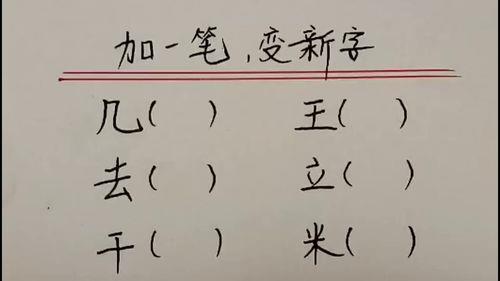 加一笔,变新字
几( ) 王( )
去( ) 立( )
干( ) 米( )